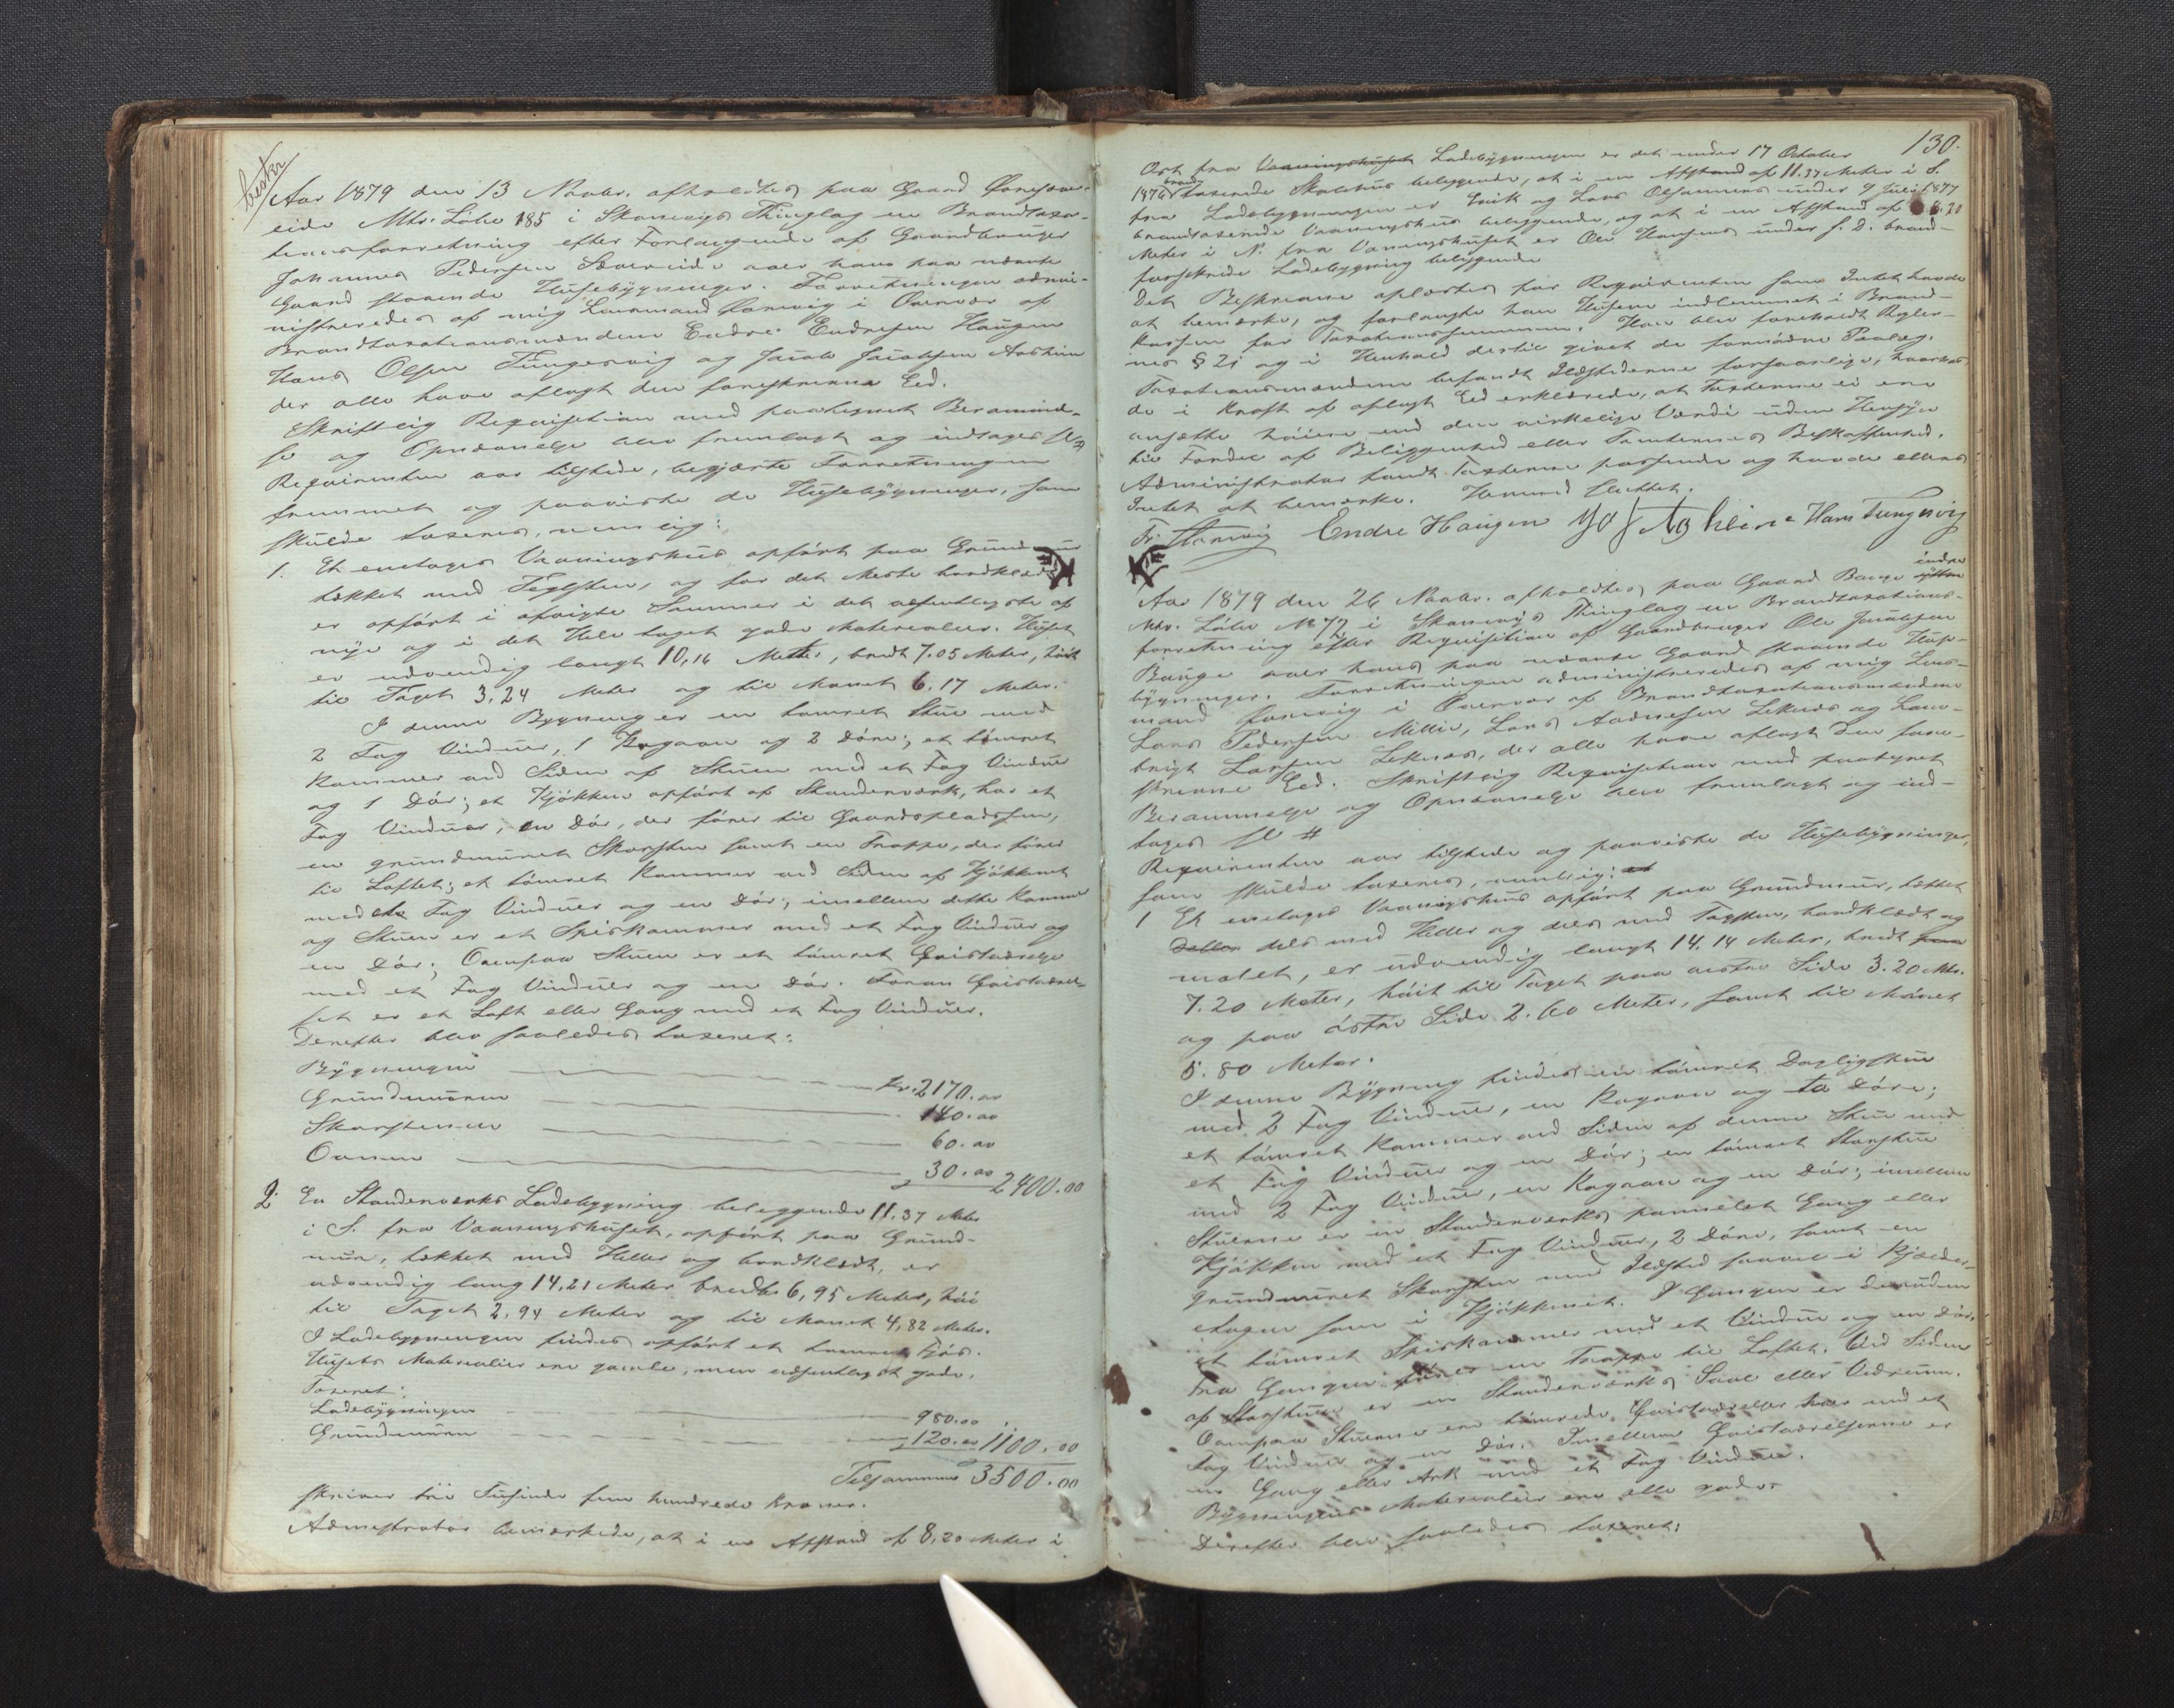 Aar 1879 den 13 Novbr. afholdtes paa Gaard
eide Mtr. Løbe 185 i Skonevigs Thinglag en Brandtaxa-
tionsforretning efter Forlangende af Gaardbruger
Johannes Pedersen Sævereide over hans paa nævnte
Gaard staaende Husebygninger. Forretningen admi-
nistreredes af mig Lensmand i Overvær af
Brandtaxationsmændene Endre Endresen Haugen
Hans Olsen Tungesvig og Jacob Jacobsen
der alle have aflagt den foreskrevne Eed.
Skriftlig Requisition med paategnet Berammel-
se og Opnævnelse blev fremlagt og indtages
Requirenten var tilstede, begjærte Forretningen
fremmet og paaviste de Husebygninger, som
skulde taxeres, nemlig:
1. Et enetages Vaaningshus opført paa Grundmur
tækket med Teglsten, og for det Meste bordklædt
er opført i afvigte Sommer i det væsentligste af
nye og i det Hele taget gode Materialier. Huset
er udvendig langt 10,16 Meter, bredt 7.05 Meter, høit
til Taget 3,24 Meter og til Mønet 6.17 Meter.
I denne Bygning er en tømret Stue med
2 Fag Vinduer, 1 Kogovn og 2 Døre; et tømret
Kammer ved Siden af Stuen med et Fag Vinduer
og 1 Dør; et Kjøkken opført af Standerværk, har et
Fag Vinduer, en Dør, der fører til Gaardspladsen,
en grundmuret Skorsten samt en Trappe, der fører
til Loftet; et tømret Kammer ved Siden af Kjøkkenet
med et Fag Vinduer og en Dør; imellem dette Kammer
og Stuen er et Spiskammer med et Fag Vinduer og
en Dør; Ovenpaa Stuen er et tømret Gjæsteværelse
med et Fag Vinduer og en Dør. Foran Gjæsteværel-
set er et Loft eller Gang med et Fag Vinduer.
Derefter blev saaledes taxeret:
Bygningen Kr. 2170.00
Grundmuren 140.00
Skorstenen 60.00
Ovnen 30.00 2400.00
2. En Standerværks Ladebygning beliggende 11.37 Meter
i S. fra Vaaningshuset, opført paa Grund-
mur, tækket med Heller og bordklædt, er
udvendig lang 14,21 Meter bredt 6,95 Meter, høi
til Taget 2,94 Meter og til Mønet 4,82 Meter.
I Ladebygningen findes opført et tømret Fjøs.
Husets Materialier ere gamle, men væsentligst gode.
Taxeret:
Ladebygningen 980.00
Grundmuren 120.00 1100.00
Tilsammen 3500.00
skriver tre Tusinde fem hundrede Kroner.
Administrator bemærkede, at i en Afstand af 8,20 Meter i
130.
Ost fra Vaaningshuset Ladebygningen er det under 17 October
1876 brandtaxerede Skolehus beliggende, at i en Afstand af 11.37 Meter i S.
fra Ladebygningen er Erik og Lars Olsønners under 9 Juli 1877
brandtaxerede Vaaningshus beliggende, og at i en Afstand af 8.20
Meter i N. fra Vaaningshuset er Ole Hansens under s. D. brand-
forsikrede Ladebygning beliggende
Det Beskrevne oplæstes for Requirenten som Intet havde
at bemærke, og forlangte han Husene indlemmet i Brand-
kassen for Taxationssummen. Han blev foreholdt Regler-
nes § 21 og i Henhold dertil givet de fornødne Paalæg.
Taxationsmændene befandt Ildstederne forsvarlige, hvorhos
de i Kraft af aflagt Eed erklærede, at Taxterne ei ere
ansatte høiere end den virkelige Værdi uden Hensyn
til Fordel af Beliggenhed eller Tomternes Beskaffenhed.
Administrator fandt Taxterne passende og havde ellers
Intet at bemærke. Hermed sluttet.
Endre Haugen Hans Tungesvig
Aar 1879 den 26 Novbr. afholdtes paa Gaard Bauge indre ÿttre
Mtr. Løbe No 72 i Skonevigs Thinglag en Brandtaxations-
forretning efter Requisition af Gaardbruger Ole Jacobsen
Bauge over hans paa nævnte Gaard staaende Huse-
bygninger. Forretningen administreredes af mig Lens-
mand i Overvær af Brandtaxationsmændene
Lars Pedersen Lars Aadnesen Lekness og Lam-
brigt Larsen Lekness, der alle have aflagt den fore-
skrevne Eed. Skriftlig Requisition med paategnet
Berammelse og Opnævnelse blev fremlagt og ind-
tages #
Requirenten var tilstede og paaviste de Husebygninger,
som skulde taxeres, nemlig: et
1 Et enetages Vaaningshus opført paa Grundmur, tækket
dels med Heller og dels med Tagsten, bordklædt og
malet, er udvendig langt 14.14 Meter, bredt paa
7.20 Meter, høit til Taget paa vestre Side 3.20 Mtr.
og paa østre Side 2.60 Meter, samt til Mønet
5.80 Meter.
I denne Bygning findes en tømret Dagligstue
med 2 Fag Vinduer, en Kogovn og to Døre;
et tømret Kammer ved Siden af denne Stue med
et Fag Vinduer og en Dør; en tømret Storstue
med 2 Fag Vinduer, en Kogovn og en Dør; imellem
Stuerne er en Standerværks pannelet Gang eller
Kjøkken med et Fag Vinduer, 2 Døre, samt en
grundmuret Skorsten med Ildsted saavel i Kjælder-
etagen som i Kjøkkenet. I Gangen er desuden
et tømret Spiskammer med et Vindue og en Dør.
Fra Gangen fører en Trappe til Loftet. Ved Siden
af Storstuen er en Standerværks Sval eller Vedrum.
Ovenpaa Stuerne ere tømrede Gjæsteværelser hver med et
Fag Vinduer og en Dør. Imellem Gjæsteværelserne er
en Gang eller Ark med et Fag Vinduer.
Bygningens Materialier ere alle gode.
Derefter blev saaledes taxeret: